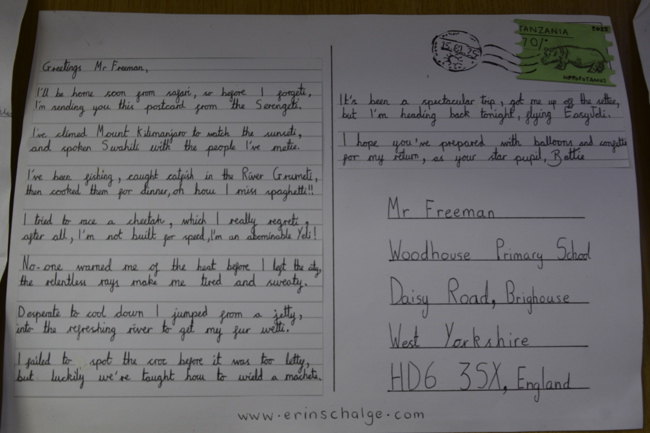 Greetings Mr Freeman,
I'll be home soon from safari, so before I forgeti,
I'm sending you this postcard from the Serengeti.
I've climed Mount Kilimanjaro to watch the sunseti,
and spoken Swahili with the people I've metie.
I've been fishing, caught catfish in the River Grumeti,
then cooked them for dinner, oh how I miss spaghetti!!
I tried to race a cheetah, which I really regreti,
after all, I'm not built for speed, I'm an abominable Yeti!
No-one warned me of the heat before I left the city,
the relentless rays make me tired and sweaty.
Desperate to cool down I jumped from a jetty,
into the refreshing river to get my fur wetti.
I failed to spot the croc before it was too letty,
but luckily we're taught how to wield a machete.
TANZANIA
70/-
HIPPOPOTAMUS
It's been a spectacular trip, got me up off the settee,
but I'm heading back tonight, flying EasyJeti.
I hope you've prepared with balloons and confetti
for my return, as your star pupil, Bettie
Mr Freeman
Woodhouse Primary School
Daisy Road, Brighouse
West Yorkshire
HD6 3SX, England
www.erinschalge.com